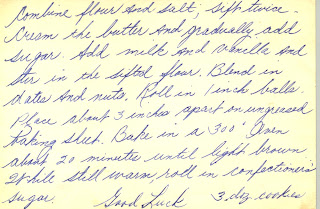 Combine flour and salt, sift twice.
Cream the butter and gradually add
sugar. Add milk and vanilla and
stir in the sifted flour. Blend in
dates and nuts. Roll in 1 inch balls.
Place about 3 inches apart on ungreased
baking sheet. Bake in a 300° Oven
about 20 minutes until light brown
While still warm roll in confectioner's
sugar. Good Luck 3 doz cookies